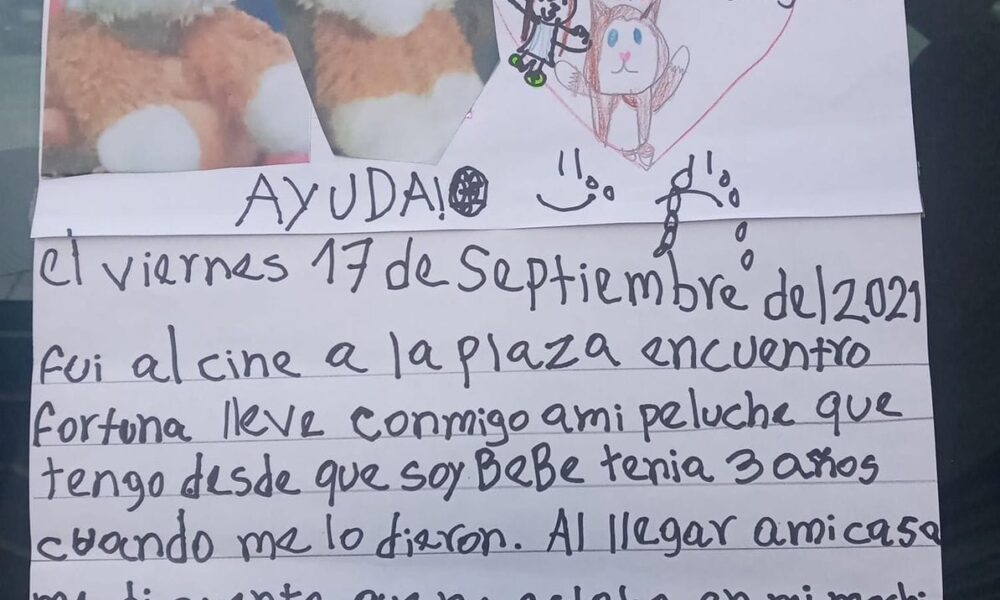 AYUDA!
el viernes 17 de septiembre del 2021
fui al cine a la plaza encuentro
fortuna lleve conmigo ami peluche que
tengo desde que soy BeBe tenia 3 años
cuando me lo dieron. Al llegar ami casa
me di cuenta que no estaba en mi mochi